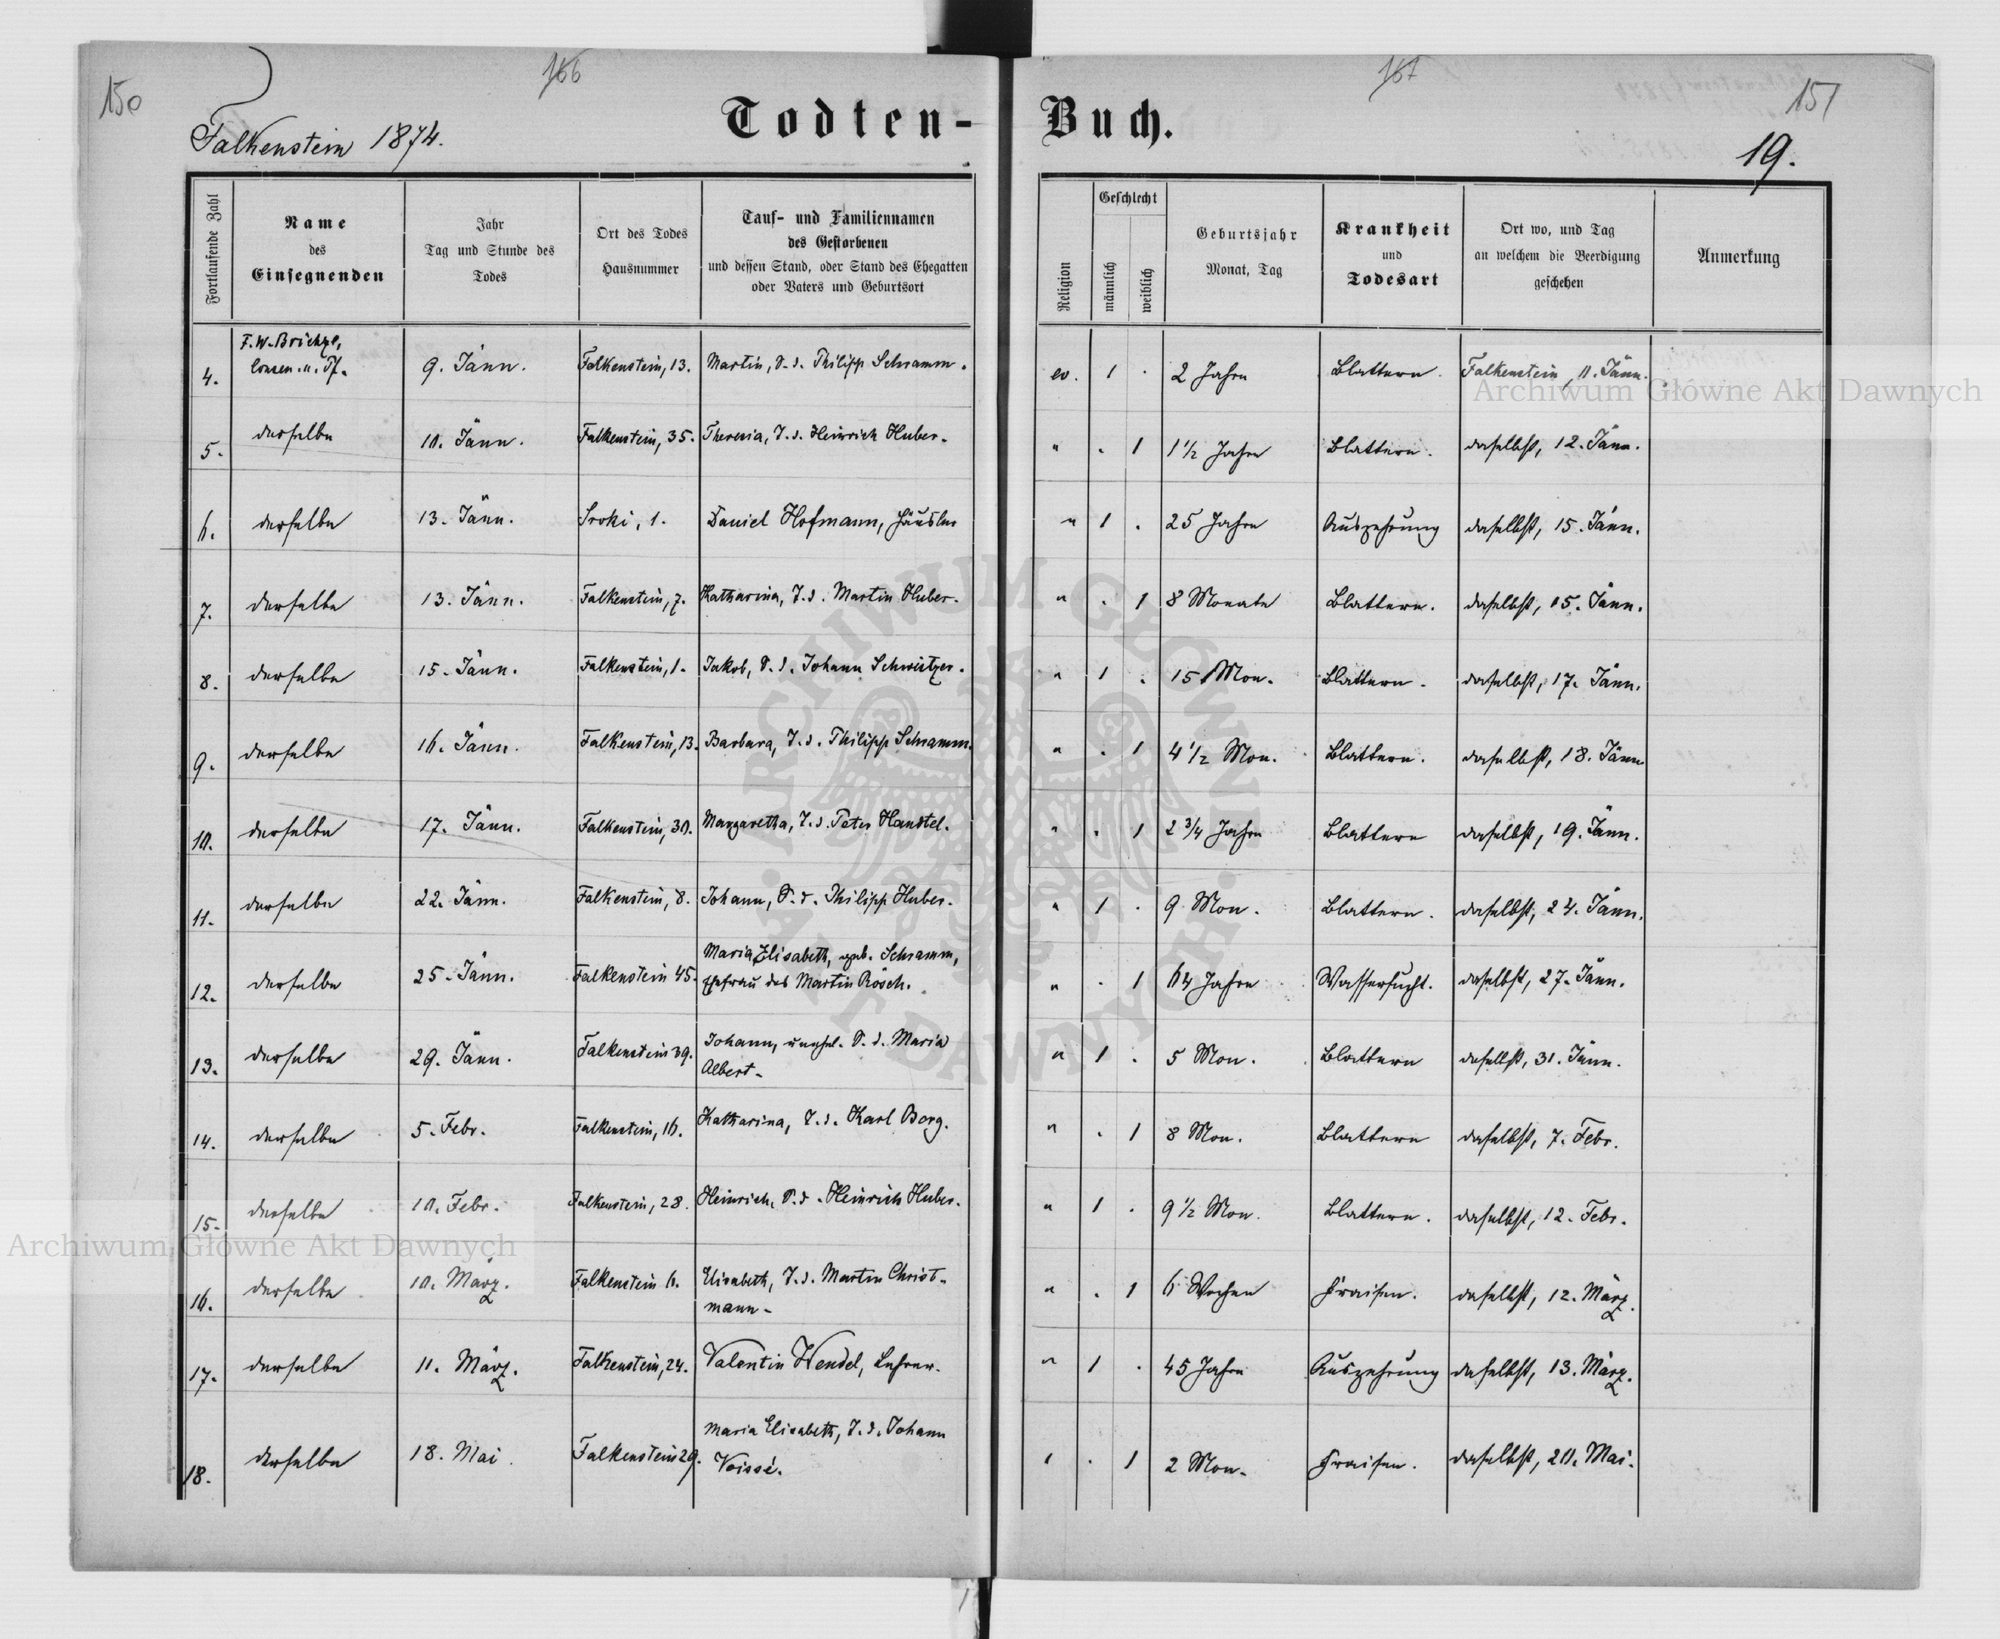 150
166
167
151
Falkenstein 1874.
Todten-Buch.
19.
Fortlaufende Zahl
Name
des
Einsegnenden
Jahr
Tag und Stunde des
Todes
Ort des Todes
Hausnummer
Tauf- und Familiennamen
des Gestorbenen
und dessen Stand, oder Stand des Ehegatten
oder Vaters und Geburtsort
Religion
Geschlecht
männlich
weiblich
Geburtsjahr
Monat, Tag
Krankheit
und
Todesart
Ort wo, und Tag
an welchem die Beerdigung
geschehen
Anmerkung
4. F. W. 9. Jänn. Falkenstein, 13. Martin, S. d. Philipp Schramm. ev. 1 . 2 Jahre Blattern. Falkenstein, 11. Jänn.
5. derselbe 10. Jänn. Falkenstein, 35. Theresia, T. d. Heinrich Huber. " . 1 1 1/2 Jahre Blattern. daselbst, 12. Jänn.
6. derselbe 13. Jänn. Sroki, 1. Daniel Hofmann, Häusler " 1 . 25 Jahre Auszehrung daselbst, 15. Jänn.
7. derselbe 13. Jänn. Falkenstein, 7. Katharina, T. d. Martin Huber. " . 1 8 Monate Blattern. daselbst, 15. Jänn.
8. derselbe 15. Jänn. Falkenstein, 1. Jakob, S. d. Johann Schweitzer. " 1 . 15 Mon. Blattern. daselbst, 17. Jänn.
9. derselbe 16. Jänn. Falkenstein, 13. Barbara, T. d. Philipp Schramm. " . 1 4 1/2 Mon. Blattern. daselbst, 18. Jänn.
10. derselbe 17. Jänn. Falkenstein, 30. Margaretha, T. d. Peter Handtel. " . 1 2 3/4 Jahre Blattern daselbst, 19. Jänn.
11. derselbe 22. Jänn. Falkenstein, 8. Johann, S. d. Philipp Huber. " 1 . 9 Mon. Blattern. daselbst, 24. Jänn.
12. derselbe 25. Jänn. Falkenstein 45. Maria Elisabeth, geb. Schramm,
Ehefrau des Martin Rösch. " . 1 64 Jahre Wassersucht. daselbst, 27. Jänn.
13. derselbe 29. Jänn. Falkenstein 39. Johann, unehel. S. d. Maria
Albert. " 1 . 5 Mon. Blattern daselbst, 31. Jänn.
14. derselbe 5. Febr. Falkenstein, 16. Katharina, T. d. Karl Borg. " . 1 8 Mon. Blattern daselbst, 7. Febr.
15. derselbe 10. Febr. Falkenstein, 28. Heinrich, S. d. Heinrich Huber. " 1 . 9 1/2 Mon. Blattern. daselbst, 12. Febr.
16. derselbe 10. März. Falkenstein 6. Elisabeth, T. d. Martin Christ-
mann. " . 1 6 Wochen Fraisen. daselbst, 12. März.
17. derselbe 11. März. Falkenstein, 24. Valentin Wendel, Lehrer. " 1 . 45 Jahre Auszehrung daselbst, 13. März.
18. derselbe 18. Mai. Falkenstein 29. Maria Elisabeth, T. d. Johann
Voissé. " . 1 2 Mon. Fraisen. daselbst, 20. Mai.
Archiwum Główne Akt Dawnych
Archiwum Główne Akt Dawnych
ARCHIWUM GŁÓWNE AKT DAWNYCH